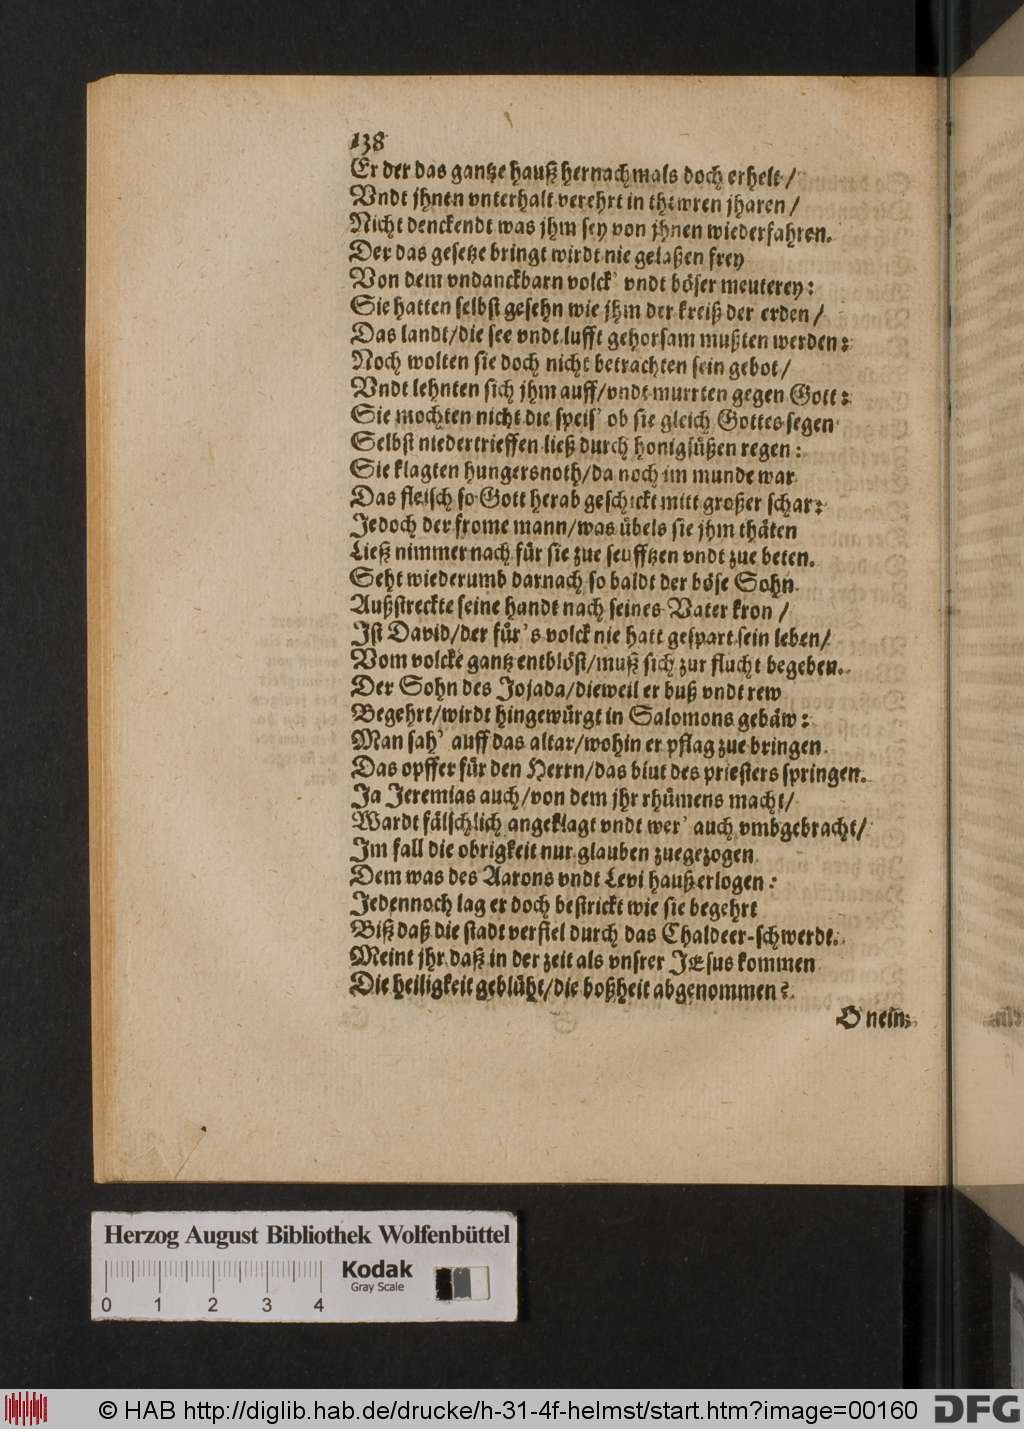 138
Er der das gantze hauß hernachmals doch erhelt /
Vndt jhnen vnterhalt verehrt in thewren jharen /
Nicht denckendt was jhm sey von jhnen wiederfahren.
Der das gesetze bringt wirdt nie gelaßen frey
Von dem vndanckbarn volck' vndt böser meuterey:
Sie hatten selbst gesehn wie jhm der kreiß der erden /
Das landt/die see vndt lufft gehorsam mußten werden:
Noch wolten sie doch nicht betrachten sein gebot /
Vndt lehnten sich jhm auff/vndt murrten gegen Gott:
Sie mochten nicht die speis' ob sie gleich Gottes segen
Selbst niedertrieffen ließ durch honigsüßen regen:
Sie klagten hungersnoth/da noch im munde war
Das fleisch so Gott herab geschickt mitt großer schar:
Jedoch der frome mann/was übels sie jhm thäten
Ließ nimmer nach für sie zue seufftzen vndt zue beten.
Seht wiederumb darnach so baldt der böse Sohn
Außstreckte seine handt nach seines Vater kron /
Jst David/der für's volck nie hatt gespart sein leben/
Vom volcke gantz entblöst/muß sich zur flucht begeben.
Der Sohn des Jojada/dieweil er buß vndt rew
Begehrt/wirdt hingewürgt in Salomons gebäw:
Man sah' auff das altar/wohin er pflag zue bringen
Das opffer für den Herrn/das blut des priesters springen.
Ja Jeremias auch/von dem jhr rhümens macht/
Wardt fälschlich angeklagt vndt wer' auch vmbgebracht/
Jm fall die obrigkeit nur glauben zuegezogen
Dem was des Aarons vndt Levi hauß erlogen:
Jedennoch lag er doch bestrickt wie sie begehrt
Biß daß die stadt verfiel durch das Chaldeer-schwerdt.
Meint jhr daß in der zeit als vnsrer JEsus kommen
Die heiligkeit geblüht/die boßheit abgenommen?
O nein;
Herzog August Bibliothek Wolfenbüttel
Kodak
Gray Scale
0 1 2 3 4
© HAB http://diglib.hab.de/drucke/h-31-4f-helmst/start.htm?image=00160
DFG